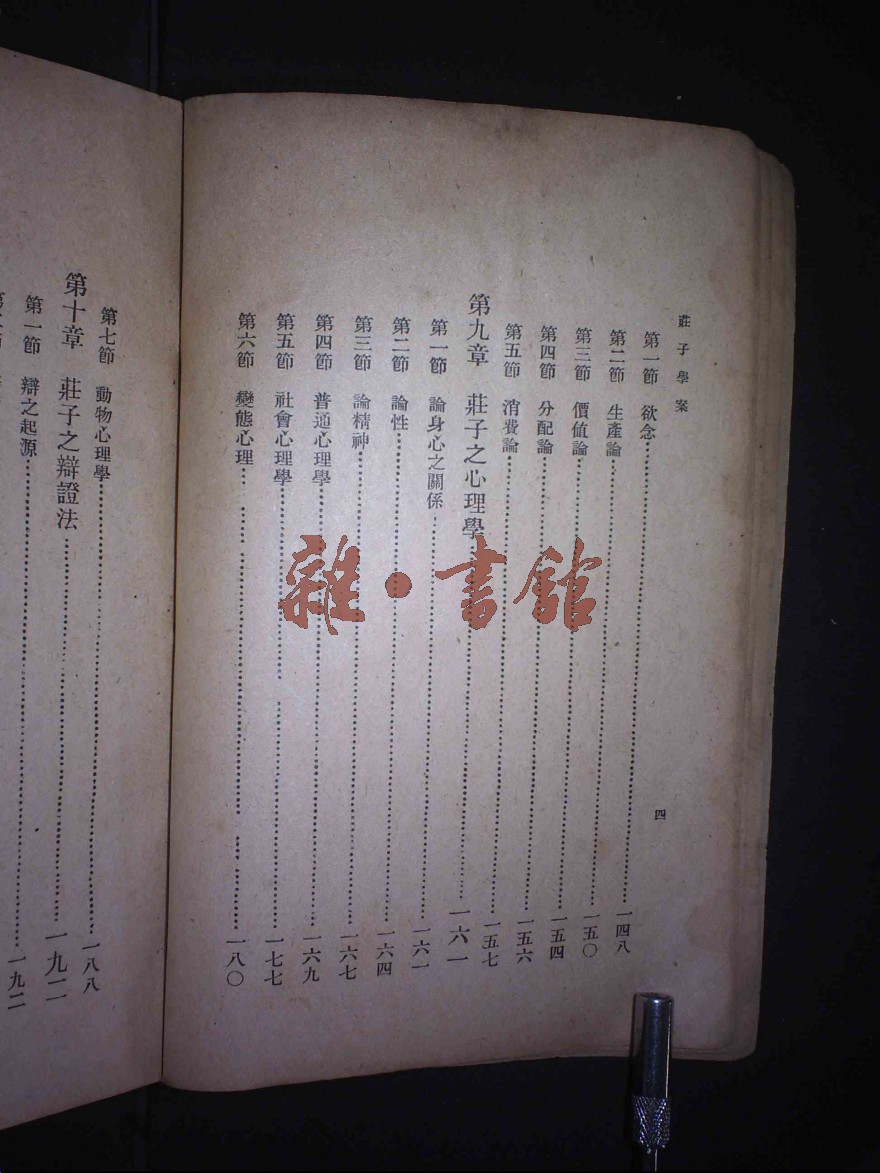 莊子學案
四
第一節 欲念……一四八
第二節 生產論……一五〇
第三節 價值論……一五四
第四節 分配論……一五六
第五節 消費論……一五七
第九章 莊子之心理學……一六一
第一節 論身心之關係……一六一
第二節 論性……一六四
第三節 論精神……一六七
第四節 普通心理學……一六九
第五節 社會心理學……一七七
第六節 變態心理……一八〇
第七節 動物心理學……一八八
第十章 莊子之辯證法……一九二
第一節 辯之起源……一九二
雜·書館